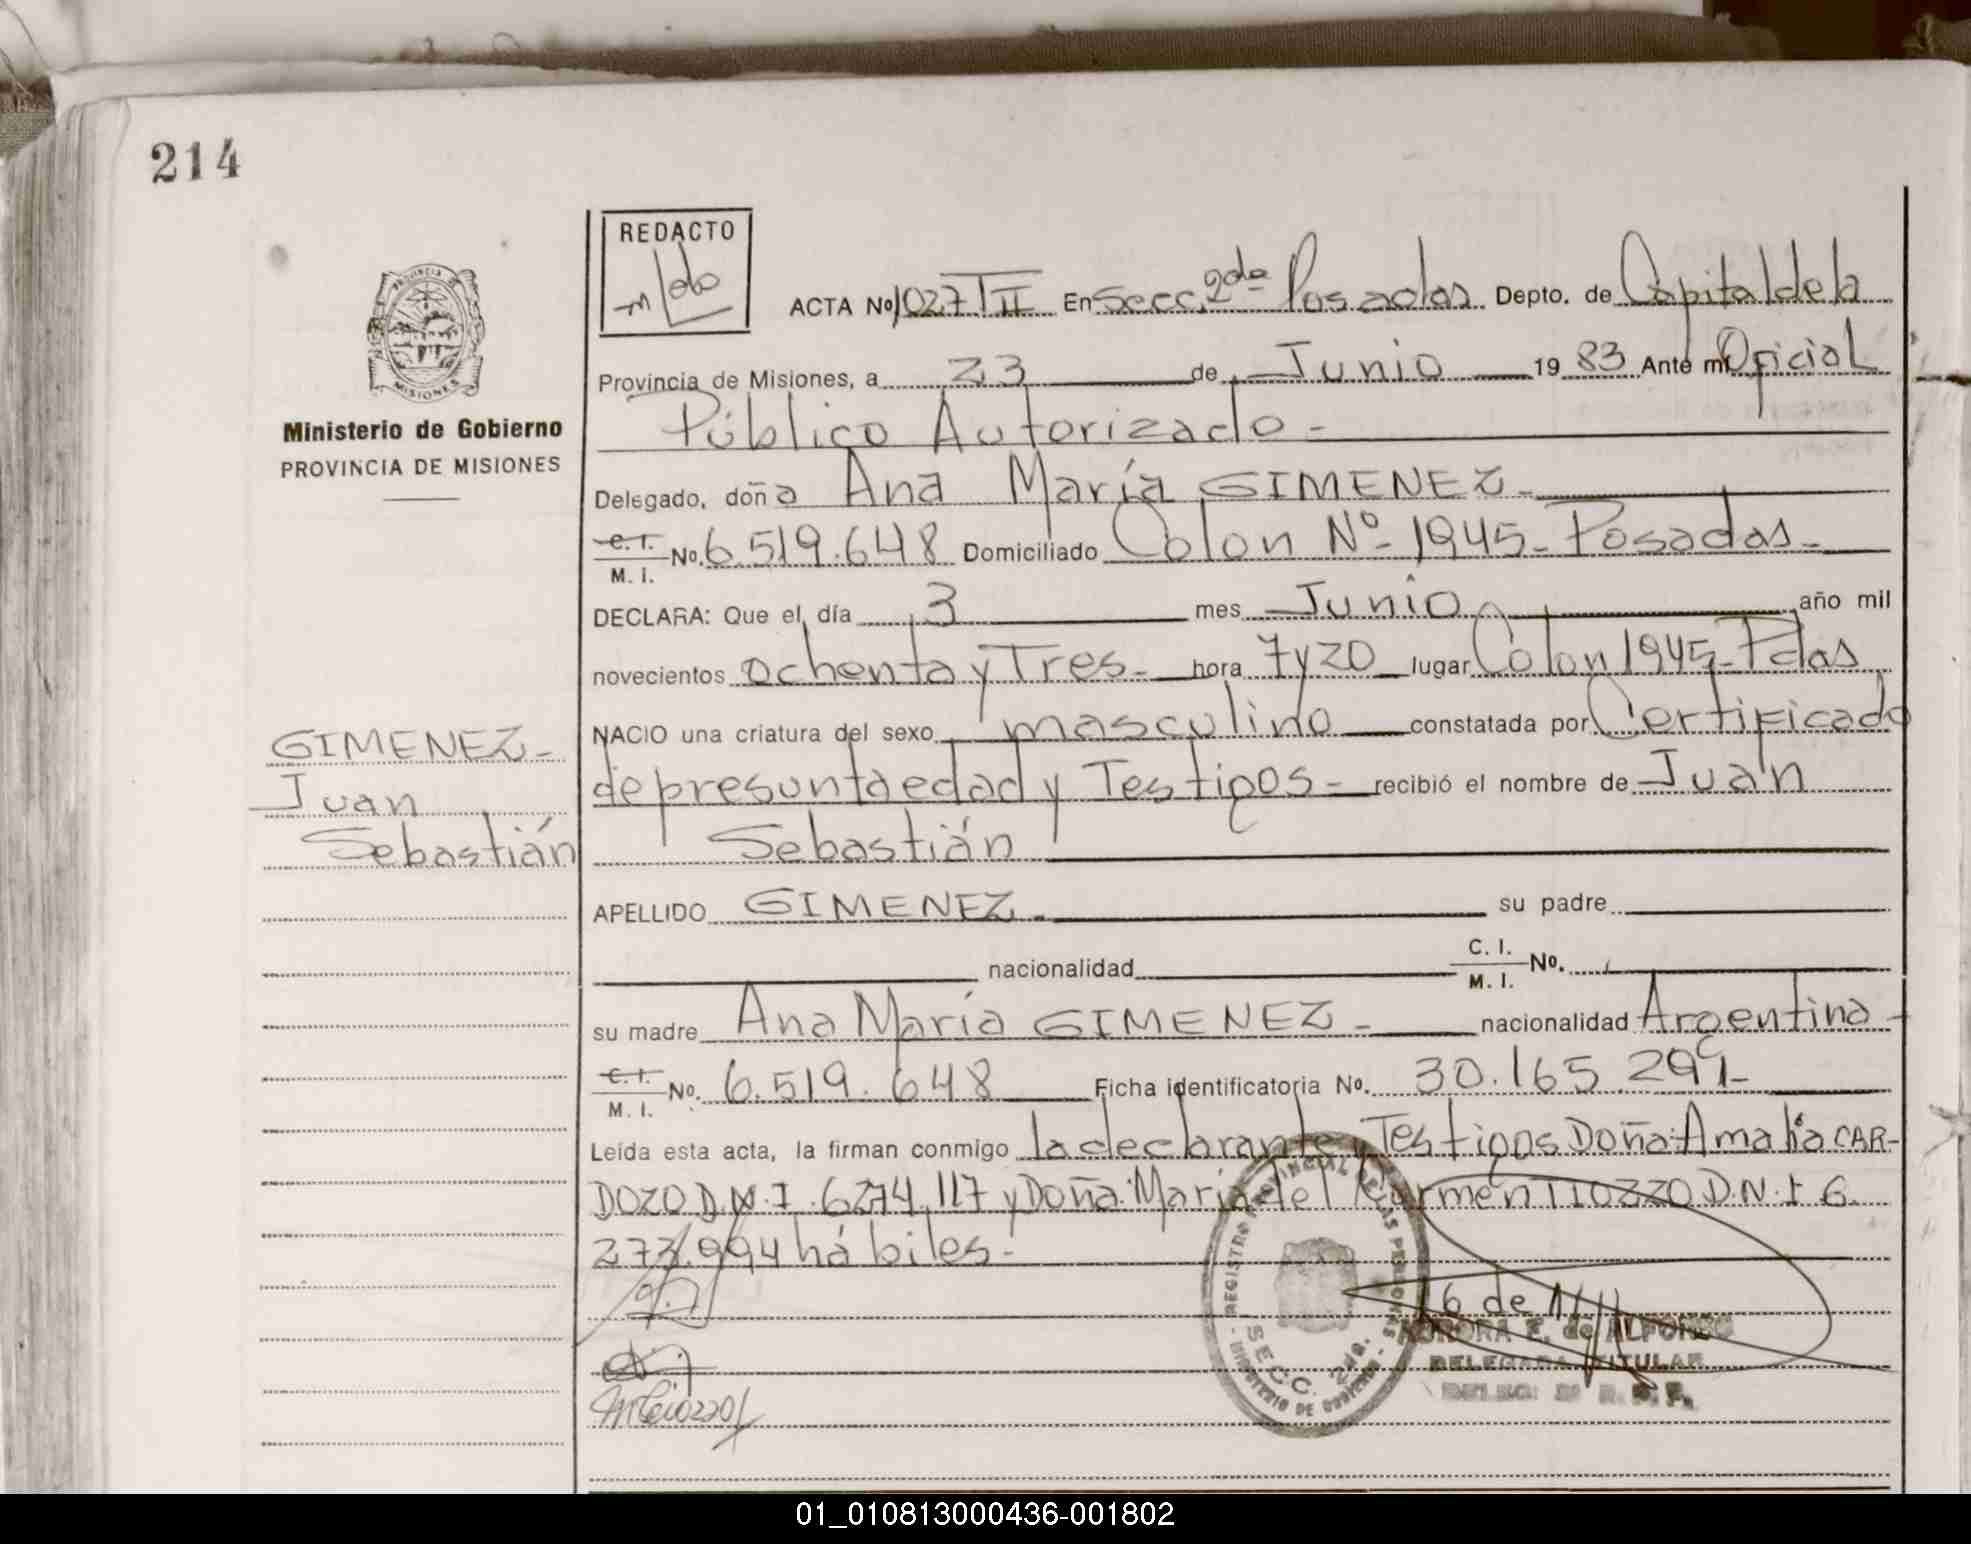 214
REDACTO
PROVINCIA
MISIONES
ACTA No 1027 T II En Secc. 2da Posadas Depto. de Capital de la
Provincia de Misiones, a 23 de Junio 19 83 Ante mí Oficial
Público Autorizado -
Ministerio de Gobierno
PROVINCIA DE MISIONES
Delegado, doña Ana María GIMENEZ -
C. I. M. I. No. 6.519.648 Domiciliado Colon Nº 1945 - Posadas -
DECLARA: Que el día 3 mes Junio año mil
novecientos ochenta y Tres - hora 7 y 20 lugar Colon 1945 - Pdas
NACIO una criatura del sexo masculino constatada por Certificado
de presunta edad y Testigos - recibió el nombre de Juan
Sebastián
GIMENEZ -
Juan
Sebastián
APELLIDO GIMENEZ - su padre
nacionalidad C. I. M. I. No.
su madre Ana María GIMENEZ - nacionalidad Argentina -
C. I. M. I. No. 6.519.648 Ficha identificatoria No. 30.165.299 -
Leída esta acta, la firman conmigo la declarante y Testigos Doña: Amalia CAR-
DOZO D.N.I. 6274.117 y Doña: María del Carmen TIOZZO D.N.I 6.
273.994 hábiles -
REGISTRO PROVINCIAL DE LAS PERSONAS
SECC. 2da.
MINISTERIO DE GOBIERNO
AURORA E. de ALFONSO
DELEGADA TITULAR
01_010813000436-001802